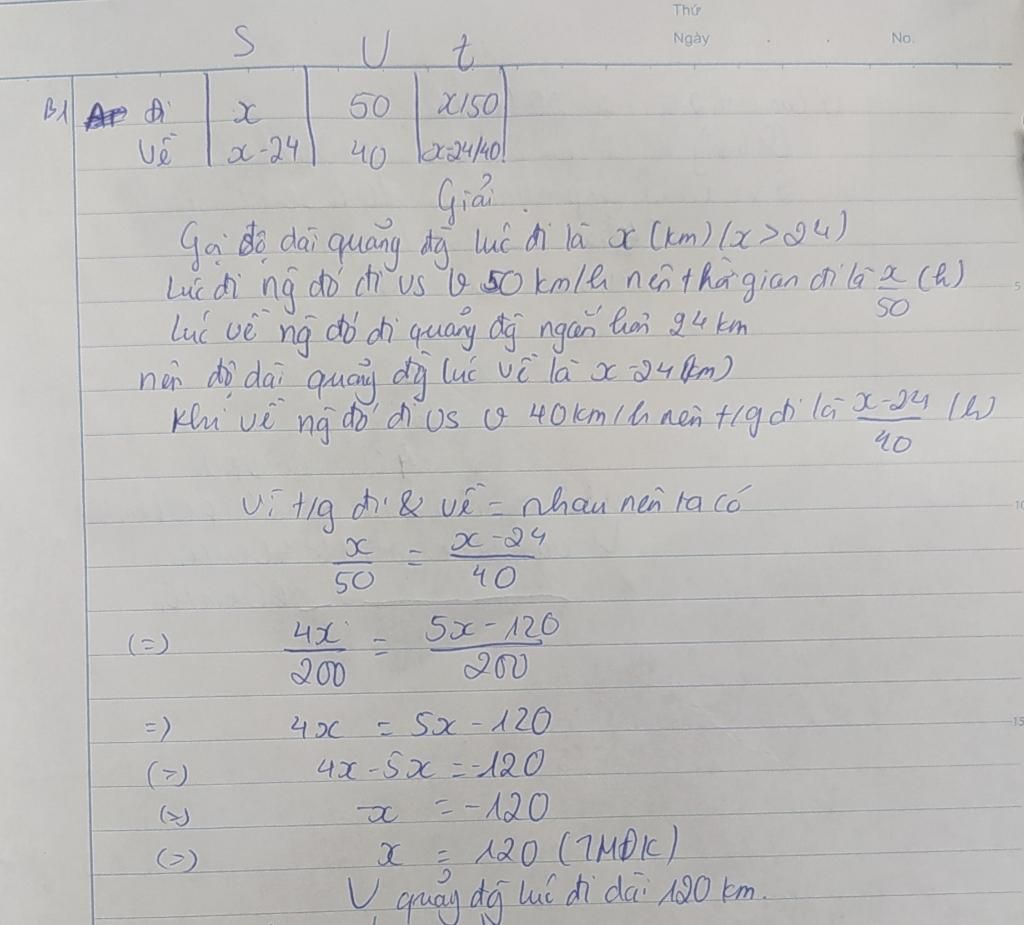 Thứ
Ngày . . No.
S U t
B1 đi x 50 x/50
về x-24 40 x-24/40
Giải.
Gọi độ dài quãng đg lúc đi là x (km) (x > 24)
Lúc đi ng đó đi vs v 50 km/h nên thời gian đi là x/50 (h)
Lúc về ng đó đi quãng đg ngắn hơn 24 km
nên độ dài quãng đg lúc về là x-24 (km)
Khi về ng đó đi vs v 40 km/h nên t/g đi là x-24/40 (h)
Vì t/g đi & về = nhau nên ta có
x/50 = x-24/40
(=) 4x/200 = 5x-120/200
=) 4x = 5x-120
(=) 4x-5x = -120
(=) -x = -120
(=) x = 120 (TMĐK)
V quãng đg lúc đi dài 120 km.
5
10
15